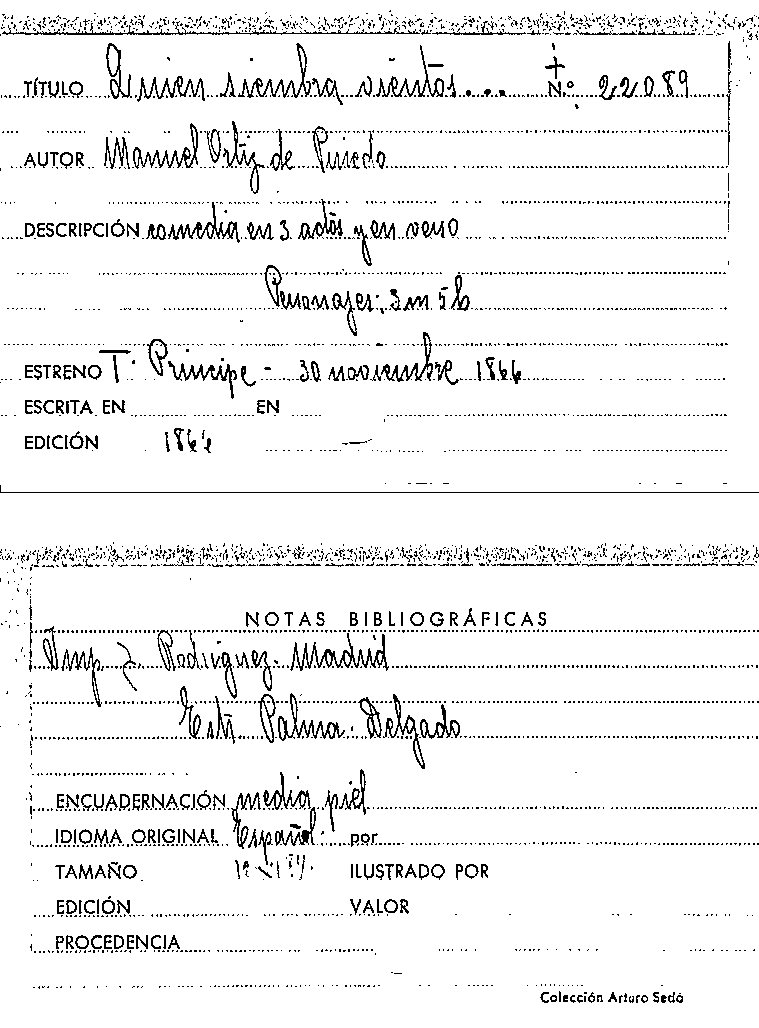 TÍTULO Quien siembra vientos... N.º 22089
AUTOR Manuel Ortiz de Pinedo
DESCRIPCIÓN comedia en 3 actos y en verso
Personajes: 3m 5h
ESTRENO T. Principe - 30 noviembre 1866
ESCRITA EN EN
EDICIÓN 1866
NOTAS BIBLIOGRÁFICAS
Imp J. Rodriguez. Madrid
Estr. Palma. Delgado
ENCUADERNACIÓN media piel
IDIOMA ORIGINAL Español. por
TAMAÑO ILUSTRADO POR
EDICIÓN VALOR
PROCEDENCIA
Colección Arturo Sedó